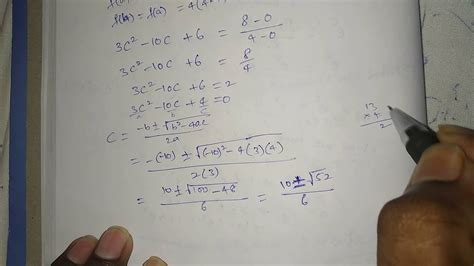 f(b) = f(4) = 4(4²
3c² - 10c + 6 = 8 - 0 / 4 - 0
3c² - 10c + 6 = 8 / 4
3c² - 10c + 6 = 2
3c² - 10c + 4 = 0
a b c
c = -b ± √b² - 4ac / 2a
= -(-10) ± √(-10)² - 4(3)(4) / 2(3)
= 10 ± √100 - 48 / 6 = 10 ± √52 / 6
13
× 4
2